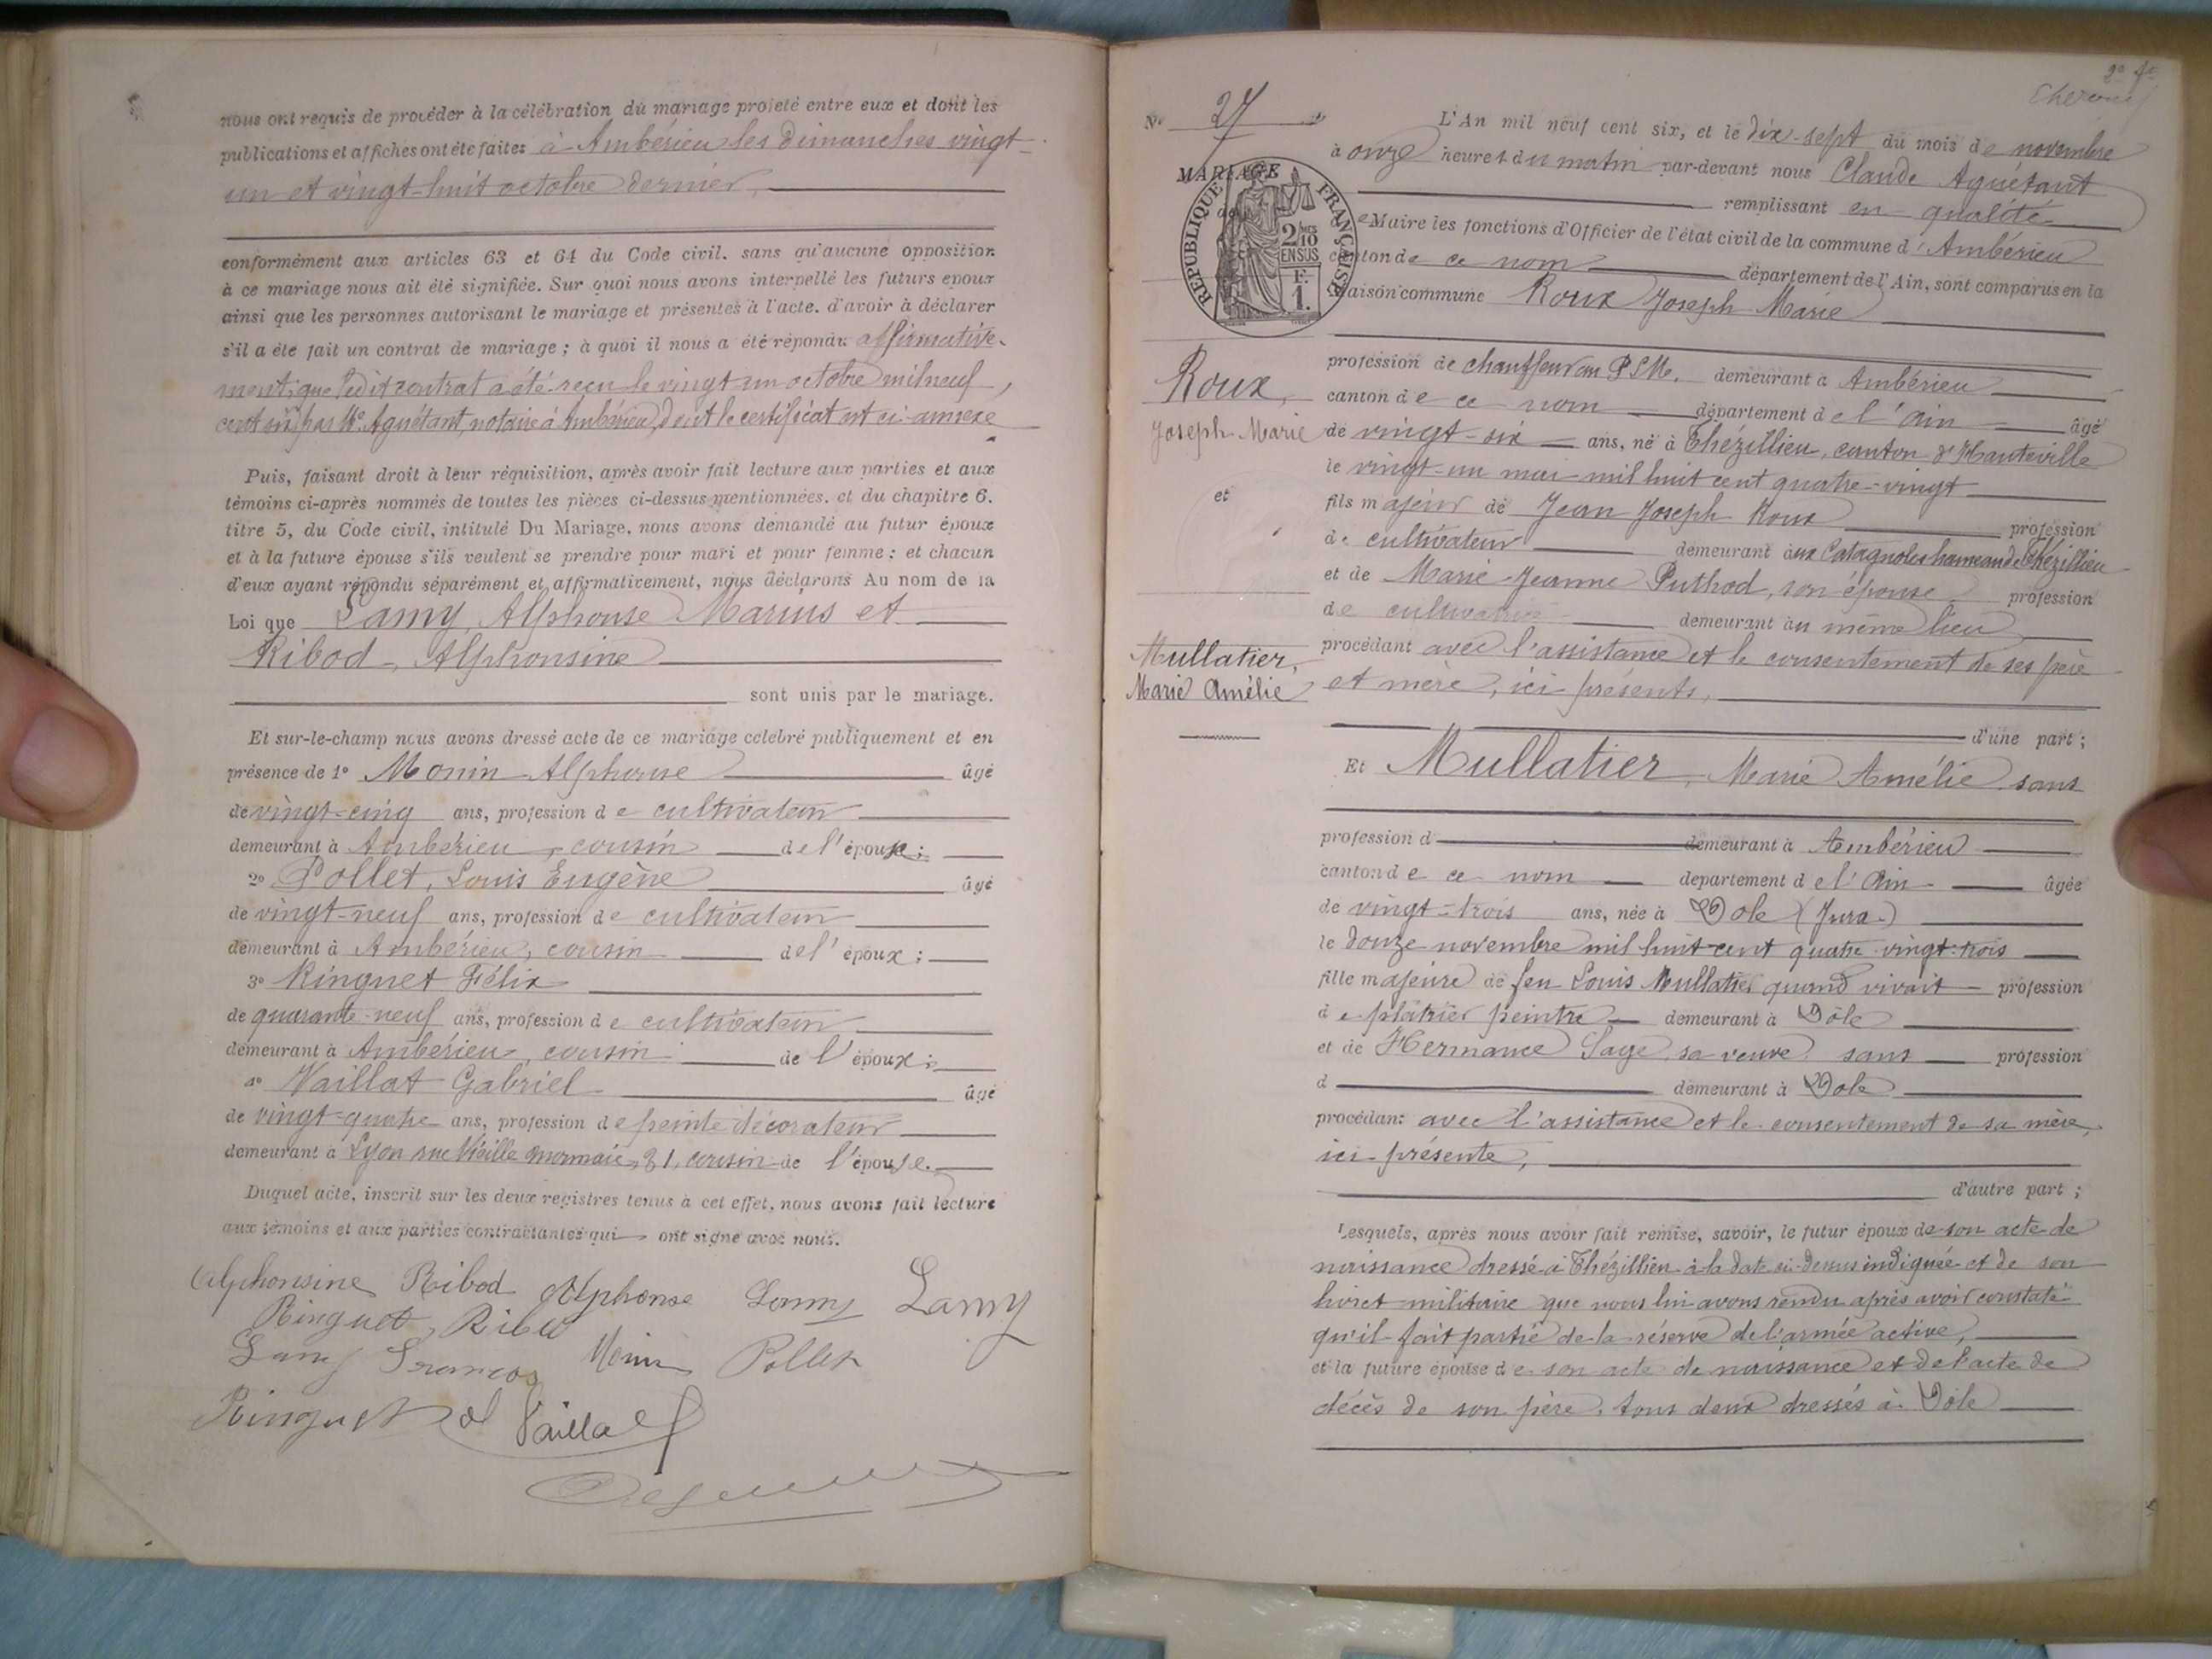 nous ont requis de procéder à la célébration du mariage projeté entre eux et dont les
publications et affiches ont été faites à Ambérieu les dimanches vingt-
un et vingt-huit octobre dernier,
conformément aux articles 63 et 64 du Code civil. sans qu'aucune opposition
à ce mariage nous ait été signifiée. Sur quoi nous avons interpellé les futurs epoux
ainsi que les personnes autorisant le mariage et présentes à l'acte. d'avoir à déclarer
s'il a été fait un contrat de mariage ; à quoi il nous a été répondu affirmative-
ment; que ledit contrat a été reçu le vingt un octobre mil neuf
cent six par Me Aguétant, notaire à Ambérieu, dont le certificat est ci-annexé
Puis, faisant droit à leur réquisition, après avoir fait lecture aux parties et aux
témoins ci-après nommés de toutes les pièces ci-dessus mentionnées. et du chapitre 6.
titre 5, du Code civil, intitulé Du Mariage, nous avons demandé au futur époux
et à la future épouse s'ils veulent se prendre pour mari et pour femme ; et chacun
d'eux ayant répondu séparément et affirmativement, nous déclarons Au nom de la
Loi que Lamy, Alphonse Marius et
Ribod, Alphonsine
sont unis par le mariage.
Et sur-le-champ nous avons dressé acte de ce mariage célébré publiquement et en
présence de 1° Monin Alphonse âgé
de vingt-cinq ans, profession de cultivateur
demeurant à Ambérieu, cousin de l'époux ;
2° Pollet, Louis Eugène âgé
de vingt-neuf ans, profession de cultivateur
demeurant à Ambérieu, cousin de l'époux ;
3° Ringuet Félix
de quarante-neuf ans, profession de cultivateur
demeurant à Ambérieu, cousin de l'époux ;
4° Vaillat Gabriel âgé
de vingt-quatre ans, profession de peintre décorateur
demeurant à Lyon rue Vieille monnaie, 31, cousin de l'épouse.
Duquel acte, inscrit sur les deux registres tenus à cet effet, nous avons fait lecture
aux témoins et aux parties contractantes qui ont signé avec nous.
Alphonsine Ribod Alphonse Lamy Lamy
Ringuet Ribod
Lamy Monin Pollet
Ringuet Vaillat
N° 27
MARIAGE
de
RÉPUBLIQUE FRANÇAISE
2/10 MES
EN SUS
F.
1.
Roux,
Joseph Marie
et
Mullatier,
Marie Amélie
L'An mil neuf cent six, et le dix-sept du mois de novembre
à onze heures du matin par-devant nous Claude Aguétant
remplissant en qualité
de Maire les fonctions d'Officier de l'état civil de la commune d'Ambérieu
canton de ce nom département de l'Ain, sont comparus en la
maison commune Roux Joseph Marie
profession de chauffeur au P.L.M. demeurant à Ambérieu
canton de ce nom département de l'Ain âgé
de vingt-six ans, né à Thézillieu, canton d'Hauteville
le vingt-un mai mil huit cent quatre-vingt
fils majeur de Jean Joseph Roux profession
de cultivateur demeurant aux Catagnoles hameau de Thézillieu
et de Marie-Jeanne Puthod, son épouse profession
de cultivatrice demeurant au même lieu
procédant avec l'assistance et le consentement de ses père
et mère, ici présents,
d'une part ;
Et Mullatier, Marie Amélie sans
profession d demeurant à Ambérieu
canton de ce nom département de l'Ain âgée
de vingt-trois ans, née à Dole (Jura)
le douze novembre mil huit cent quatre-vingt-trois
fille majeure de feu Louis Mullatier quand vivait profession
de plâtrier peintre demeurant à Dôle
et de Hermance Sage, sa veuve sans profession
d demeurant à Dole
procédant avec l'assistance et le consentement de sa mère,
ici présente,
d'autre part ;
Lesquels, après nous avoir fait remise, savoir, le futur époux de son acte de
naissance dressé à Thézillieu à la date ci-dessus indiquée et de son
livret militaire que nous lui avons rendu après avoir constaté
qu'il fait partie de la réserve de l'armée active,
et la future épouse de son acte de naissance et de l'acte de
décès de son père, tous deux dressés à Dôle